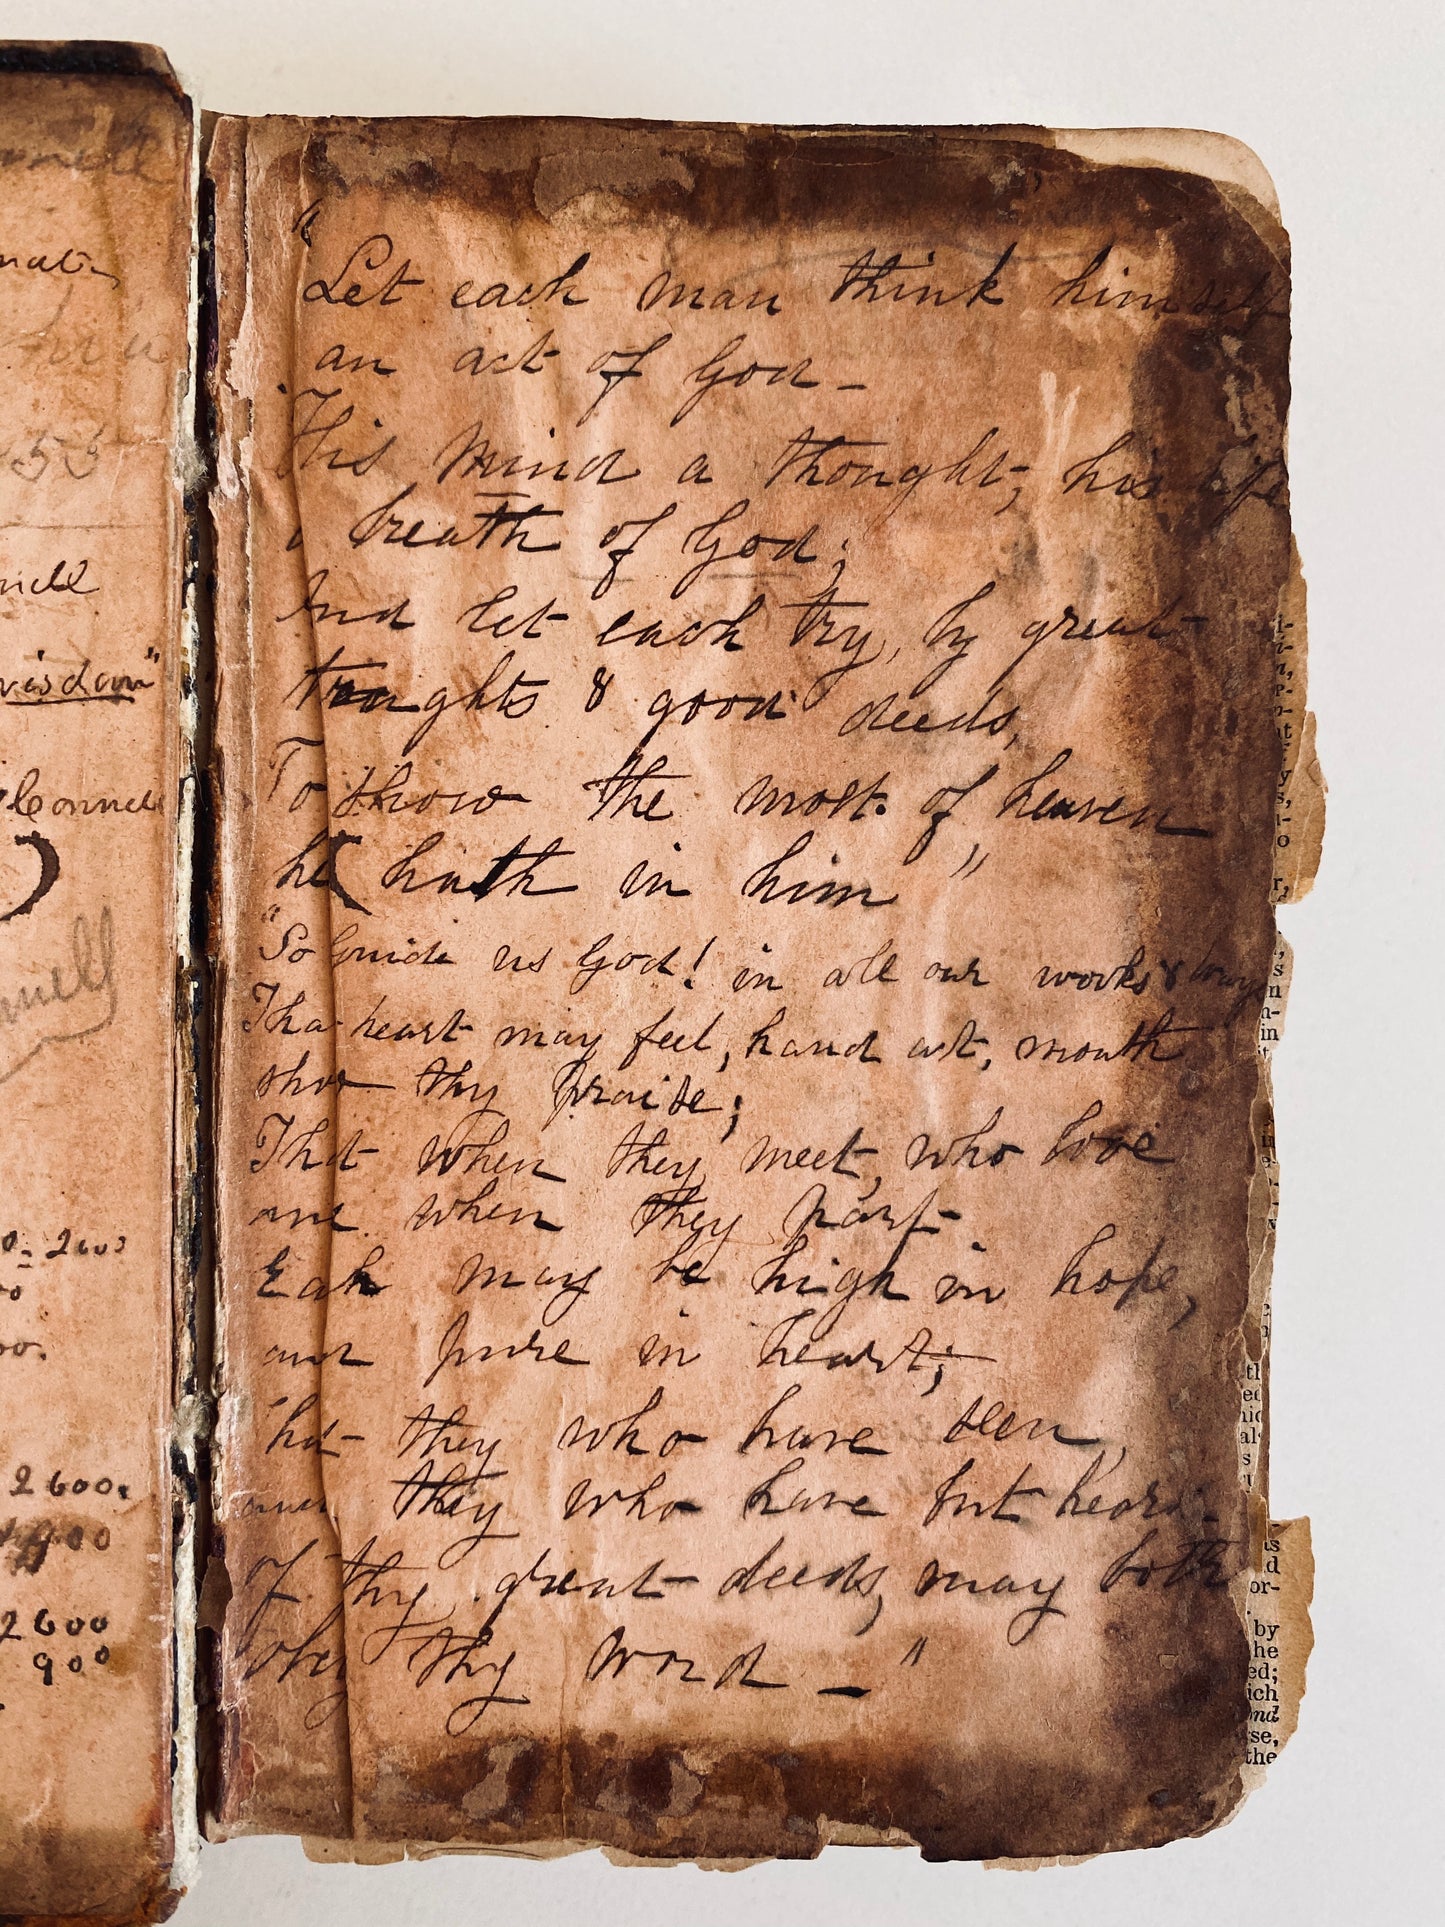 "
Let each man think himself
an act of God -
His mind a thought, his life
a breath of God;
And let each try, by great
thoughts & good deeds,
To show the most. of heaven
he ( hath in him "
"So guide us God! in all our works & ways
Tha heart may feel, hand act, mouth
shor thy praise;
That when they meet, who love
and when they part
Each may be high in hope,
and pure in heart;
That they who have seen,
and they who have but heard
Of thy great deeds, may both
Obey thy word - "
nell
wisdom"
Connell
)
2600
2600.
900
2600
900
by
he
ed;
ich
and
rse,
the